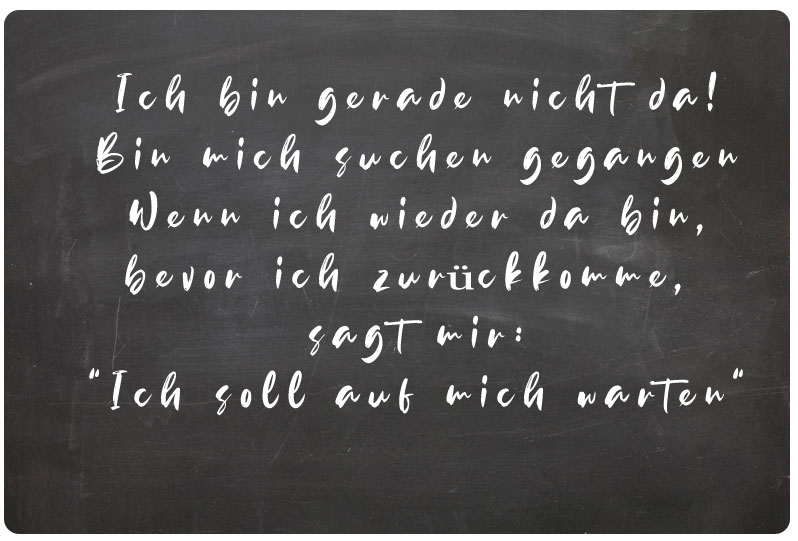 Ich bin gerade nicht da!
Bin mich suchen gegangen
Wenn ich wieder da bin,
bevor ich zurückkomme,
sagt mir:
"Ich soll auf mich warten"